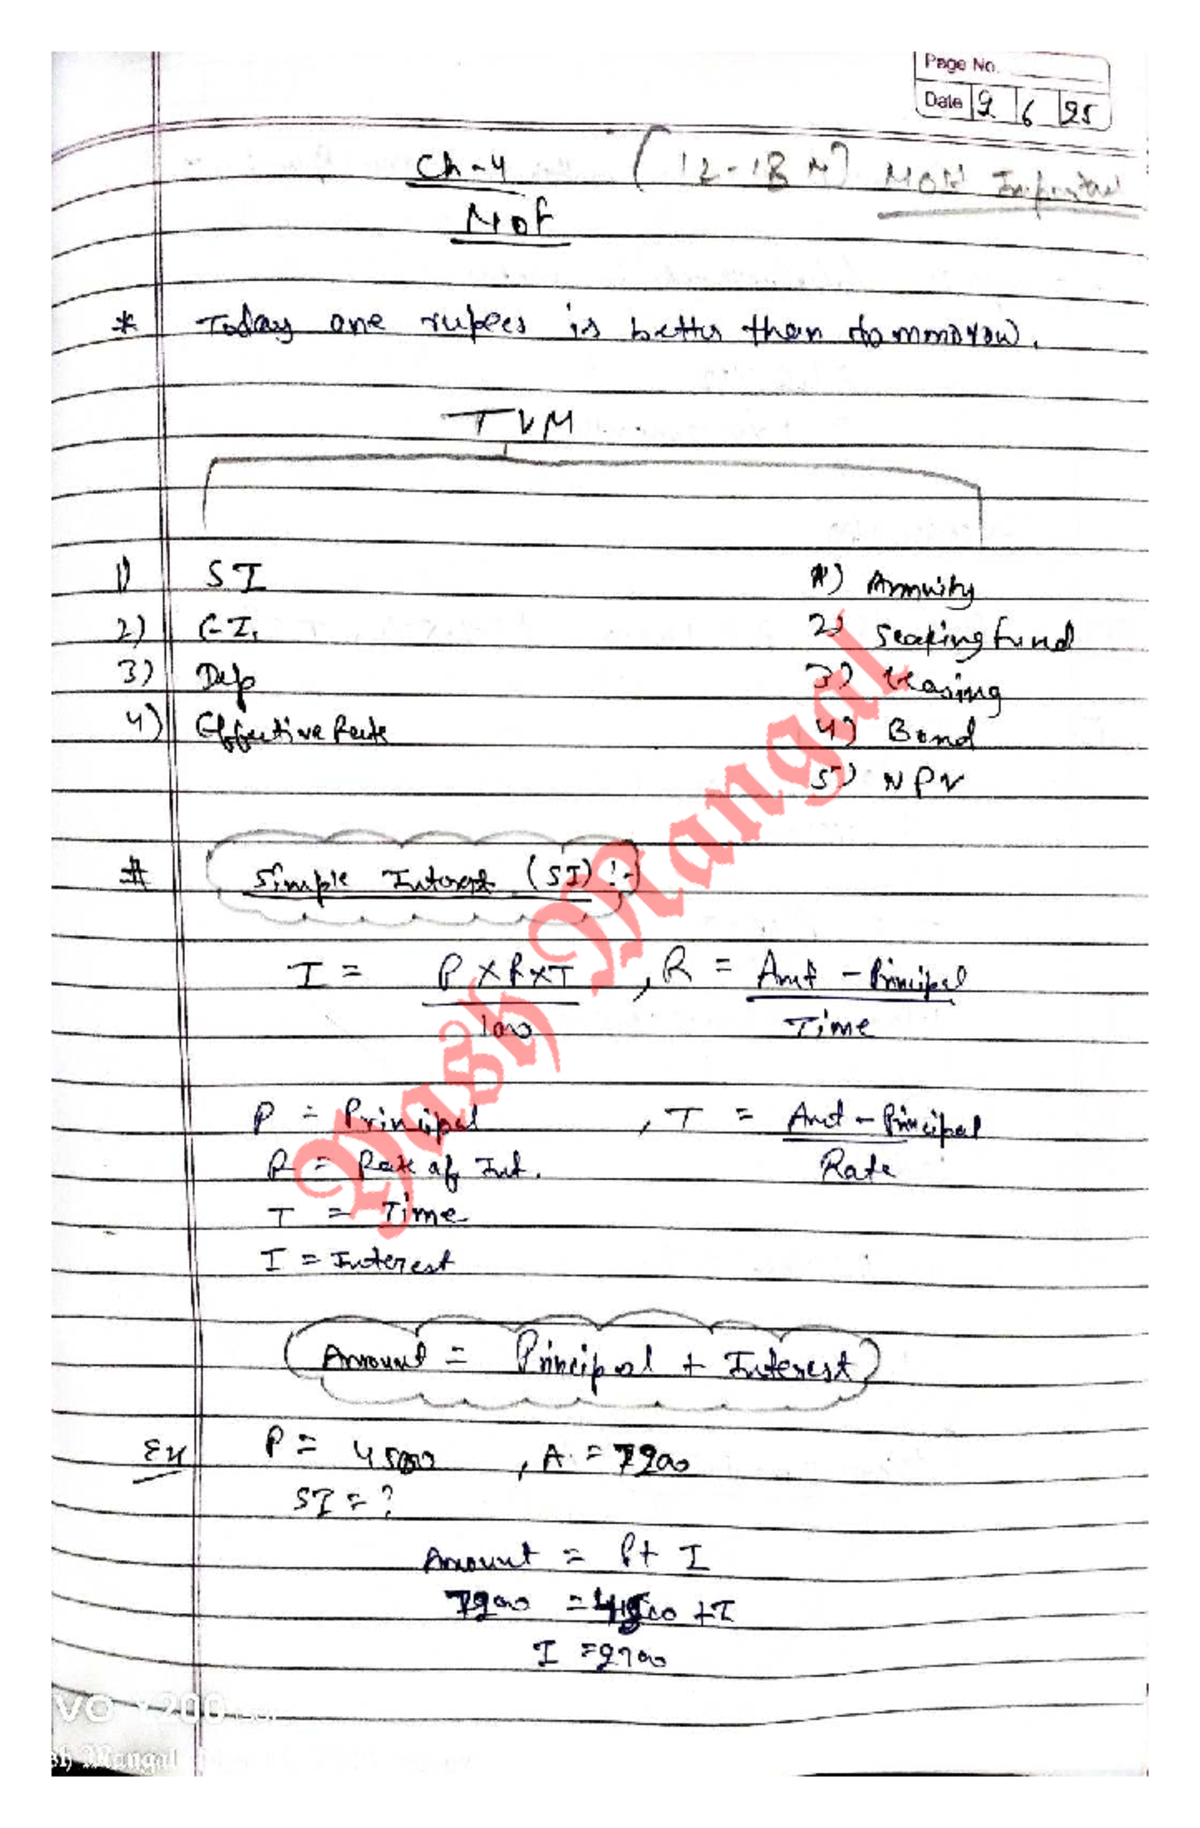 Page No.
Date 9 6 25
Ch-4 (12-18 M) Most Important
MOF
* Today one rupees is better then tommorow.
TVM
1) SI 1) Annuity
2) C.I. 2) Seaking fund
3) Dep 3) Leasing
4) Effective Rate 4) Bond
5) NPV
# Simple Interest (SI) :-
I = P X R X T , R = Amt - Principal
100 Time
P = Principal , T = Amt - Principal
R = Rate of Int. Rate
T = Time
I = Interest
Amount = Principal + Interest
Ex P = 4500 , A = 7200
SI = ?
Amount = P + I
7200 = 4500 + I
I = 2700
Yash Mangal
VO Y200
sh Mangal